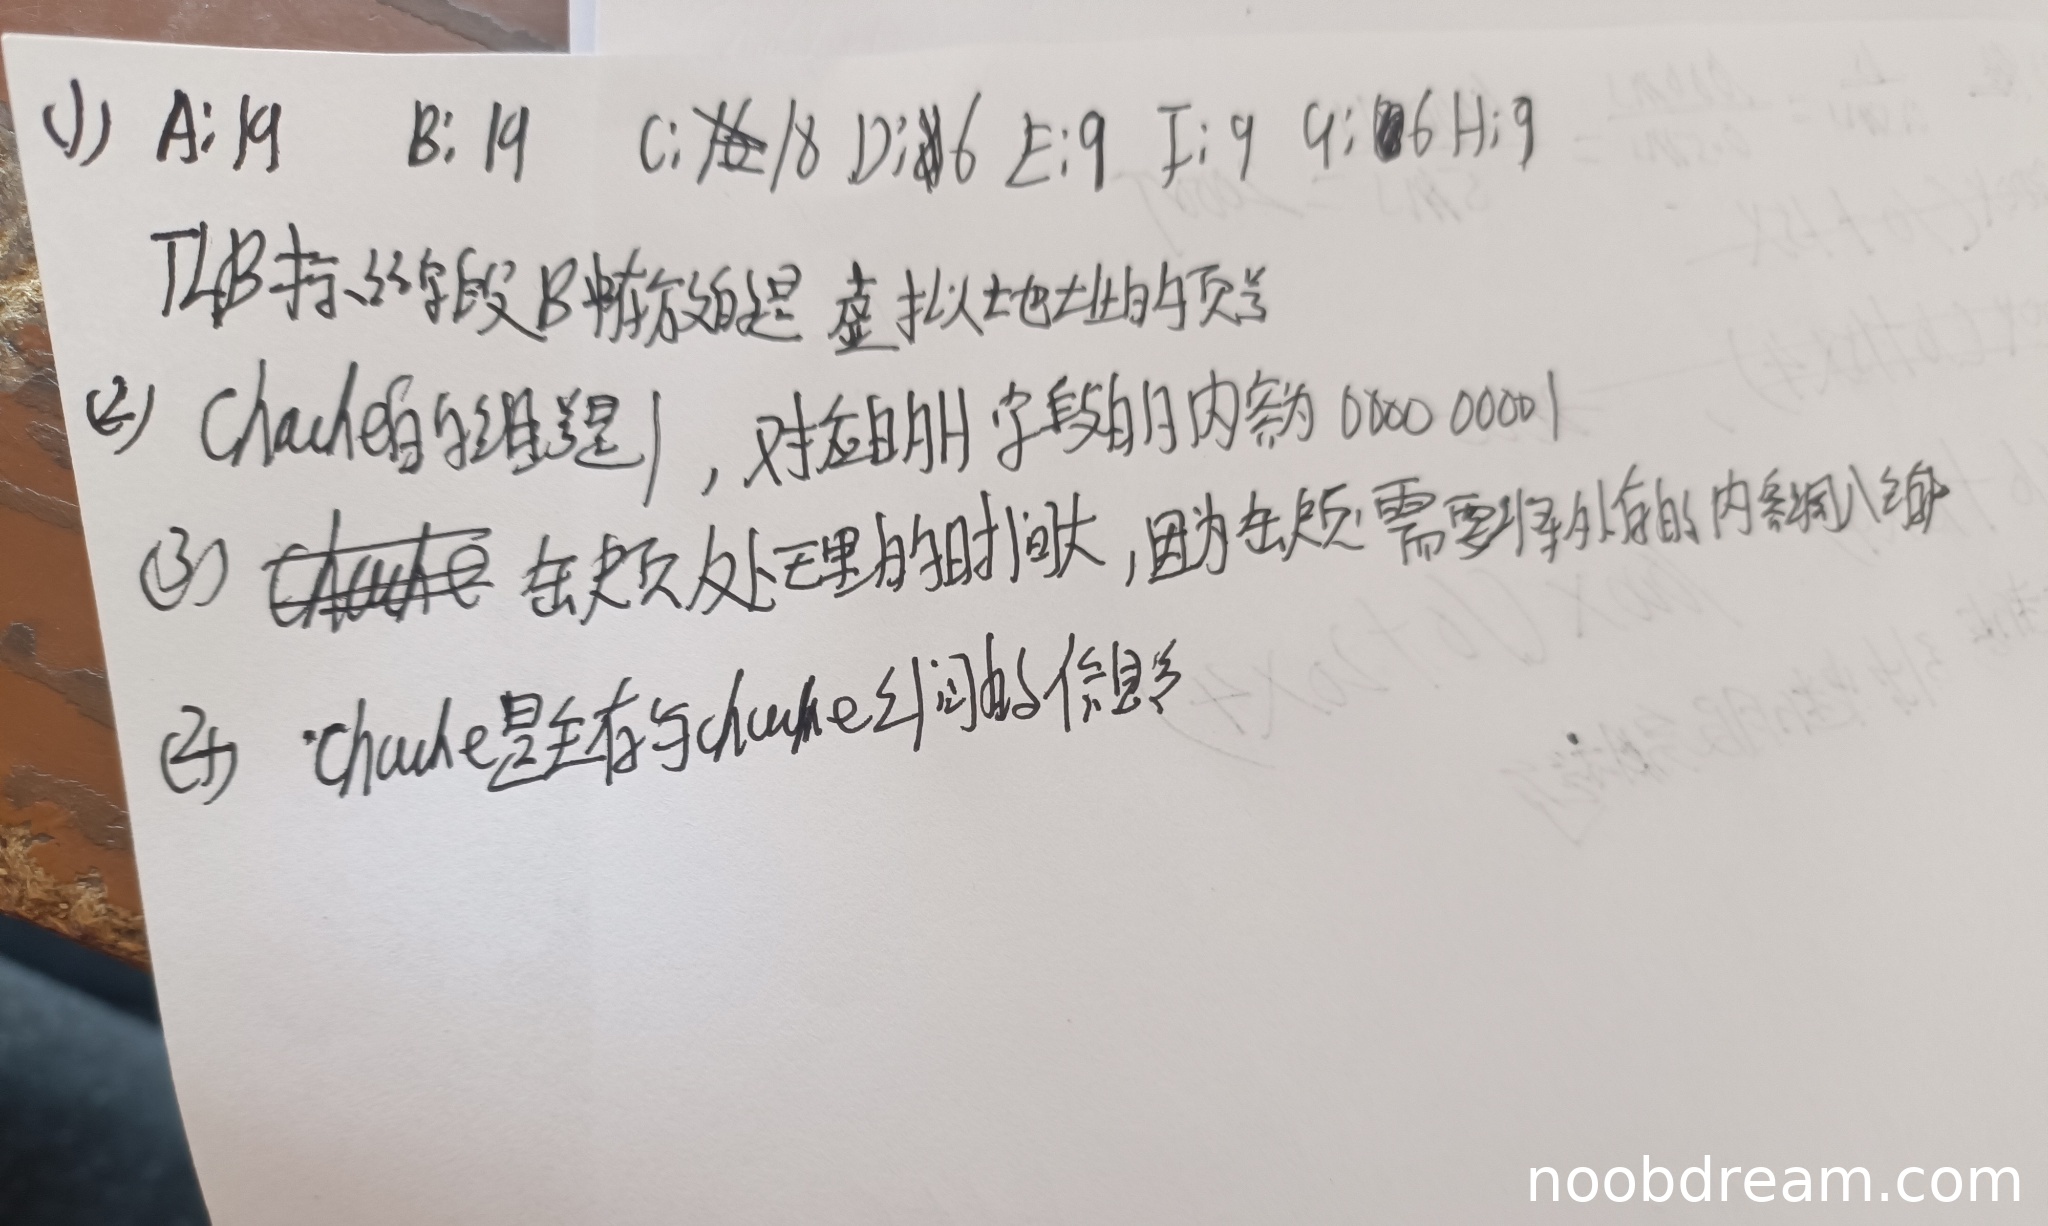 (1) A:19 B:19 C:18 D:6 E:9 I:9 G:6 H:9
TLB标 字段B中存放的是 虚拟地址的页号
(2) Chache的的组号是1，对应的的H 字段的的内容为 0000 00001
(3) 缺页处理的时间大，因为缺页 需要将外存的 内容调入
(4) Chache是主存与chache之间的信息
noobdream.com